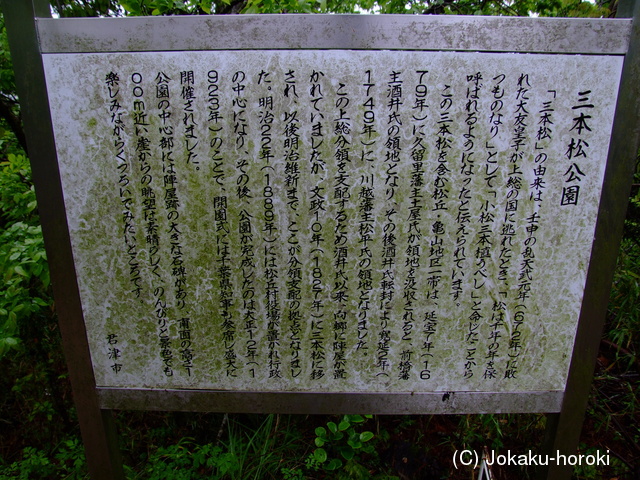 三本松公園
「三本松」の由来は、壬申の乱天武元年(672年)に敗
れた大友皇子が上総の国に逃れたとき、「松は千年の年を保
つものなり」として「小松三本植うべし」と命じたことから
呼ばれるようになったと伝えられています。
この三本松を含む松丘・亀山地区一帯は、延宝7年(16
79年)に久留里藩主土屋氏が領地を没収されると、前橋藩
主酒井氏の領地となり、その後酒井氏転封により寛延2年(
1749年)に、川越藩主松平氏の領地となりました。
この上総分領を支配するため酒井氏以来、向郷に陣屋が置
かれていましたが、文政10年(1827年)に三本松に移
され、以後明治維新まで、ここが分領支配の拠点となりまし
た。明治22年(1889年)には松丘村役場が置かれ行政
の中心になり、その後、公園が完成したのは大正12年(1
923年)のことで、開園式には千葉県知事も参席し盛大に
開催されました。
公園の中心部には陣屋跡の大きな石碑があり、南面の高さ1
00m近い崖からの眺望は素晴らしく、のんびりと景色でも
楽しみながらくつろいでみたいところです。
君津市
(C) Jokaku-horoki